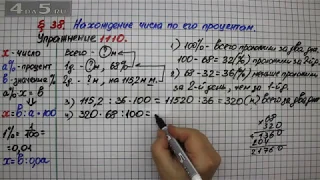 4 на 5.ru
§ 38. Нахождение числа по его процентам.
Упражнение 1110.
x - число
a% - процент
b - значение %
a% x = b
x = b : a · 100
1% = 1/100 = 0,01
x = b : 0,01a
Всего - ? м
1д. - ? м, 68%
2д. - ? м, на 115,2 м.
1) 100% - всего проложили за два дня.
100 - 68 = 32 (%) проложили за 2й день.
2) 68 - 32 = 36 (%) меньше проложили
за 2-й день, чем за 1-й день.
3) 115,2 : 36 · 100 = 11520 : 36 = 320 (м) всего за два дня.
4) 320 · 68 : 100 =
× 68
320
+ 1360
204
21760